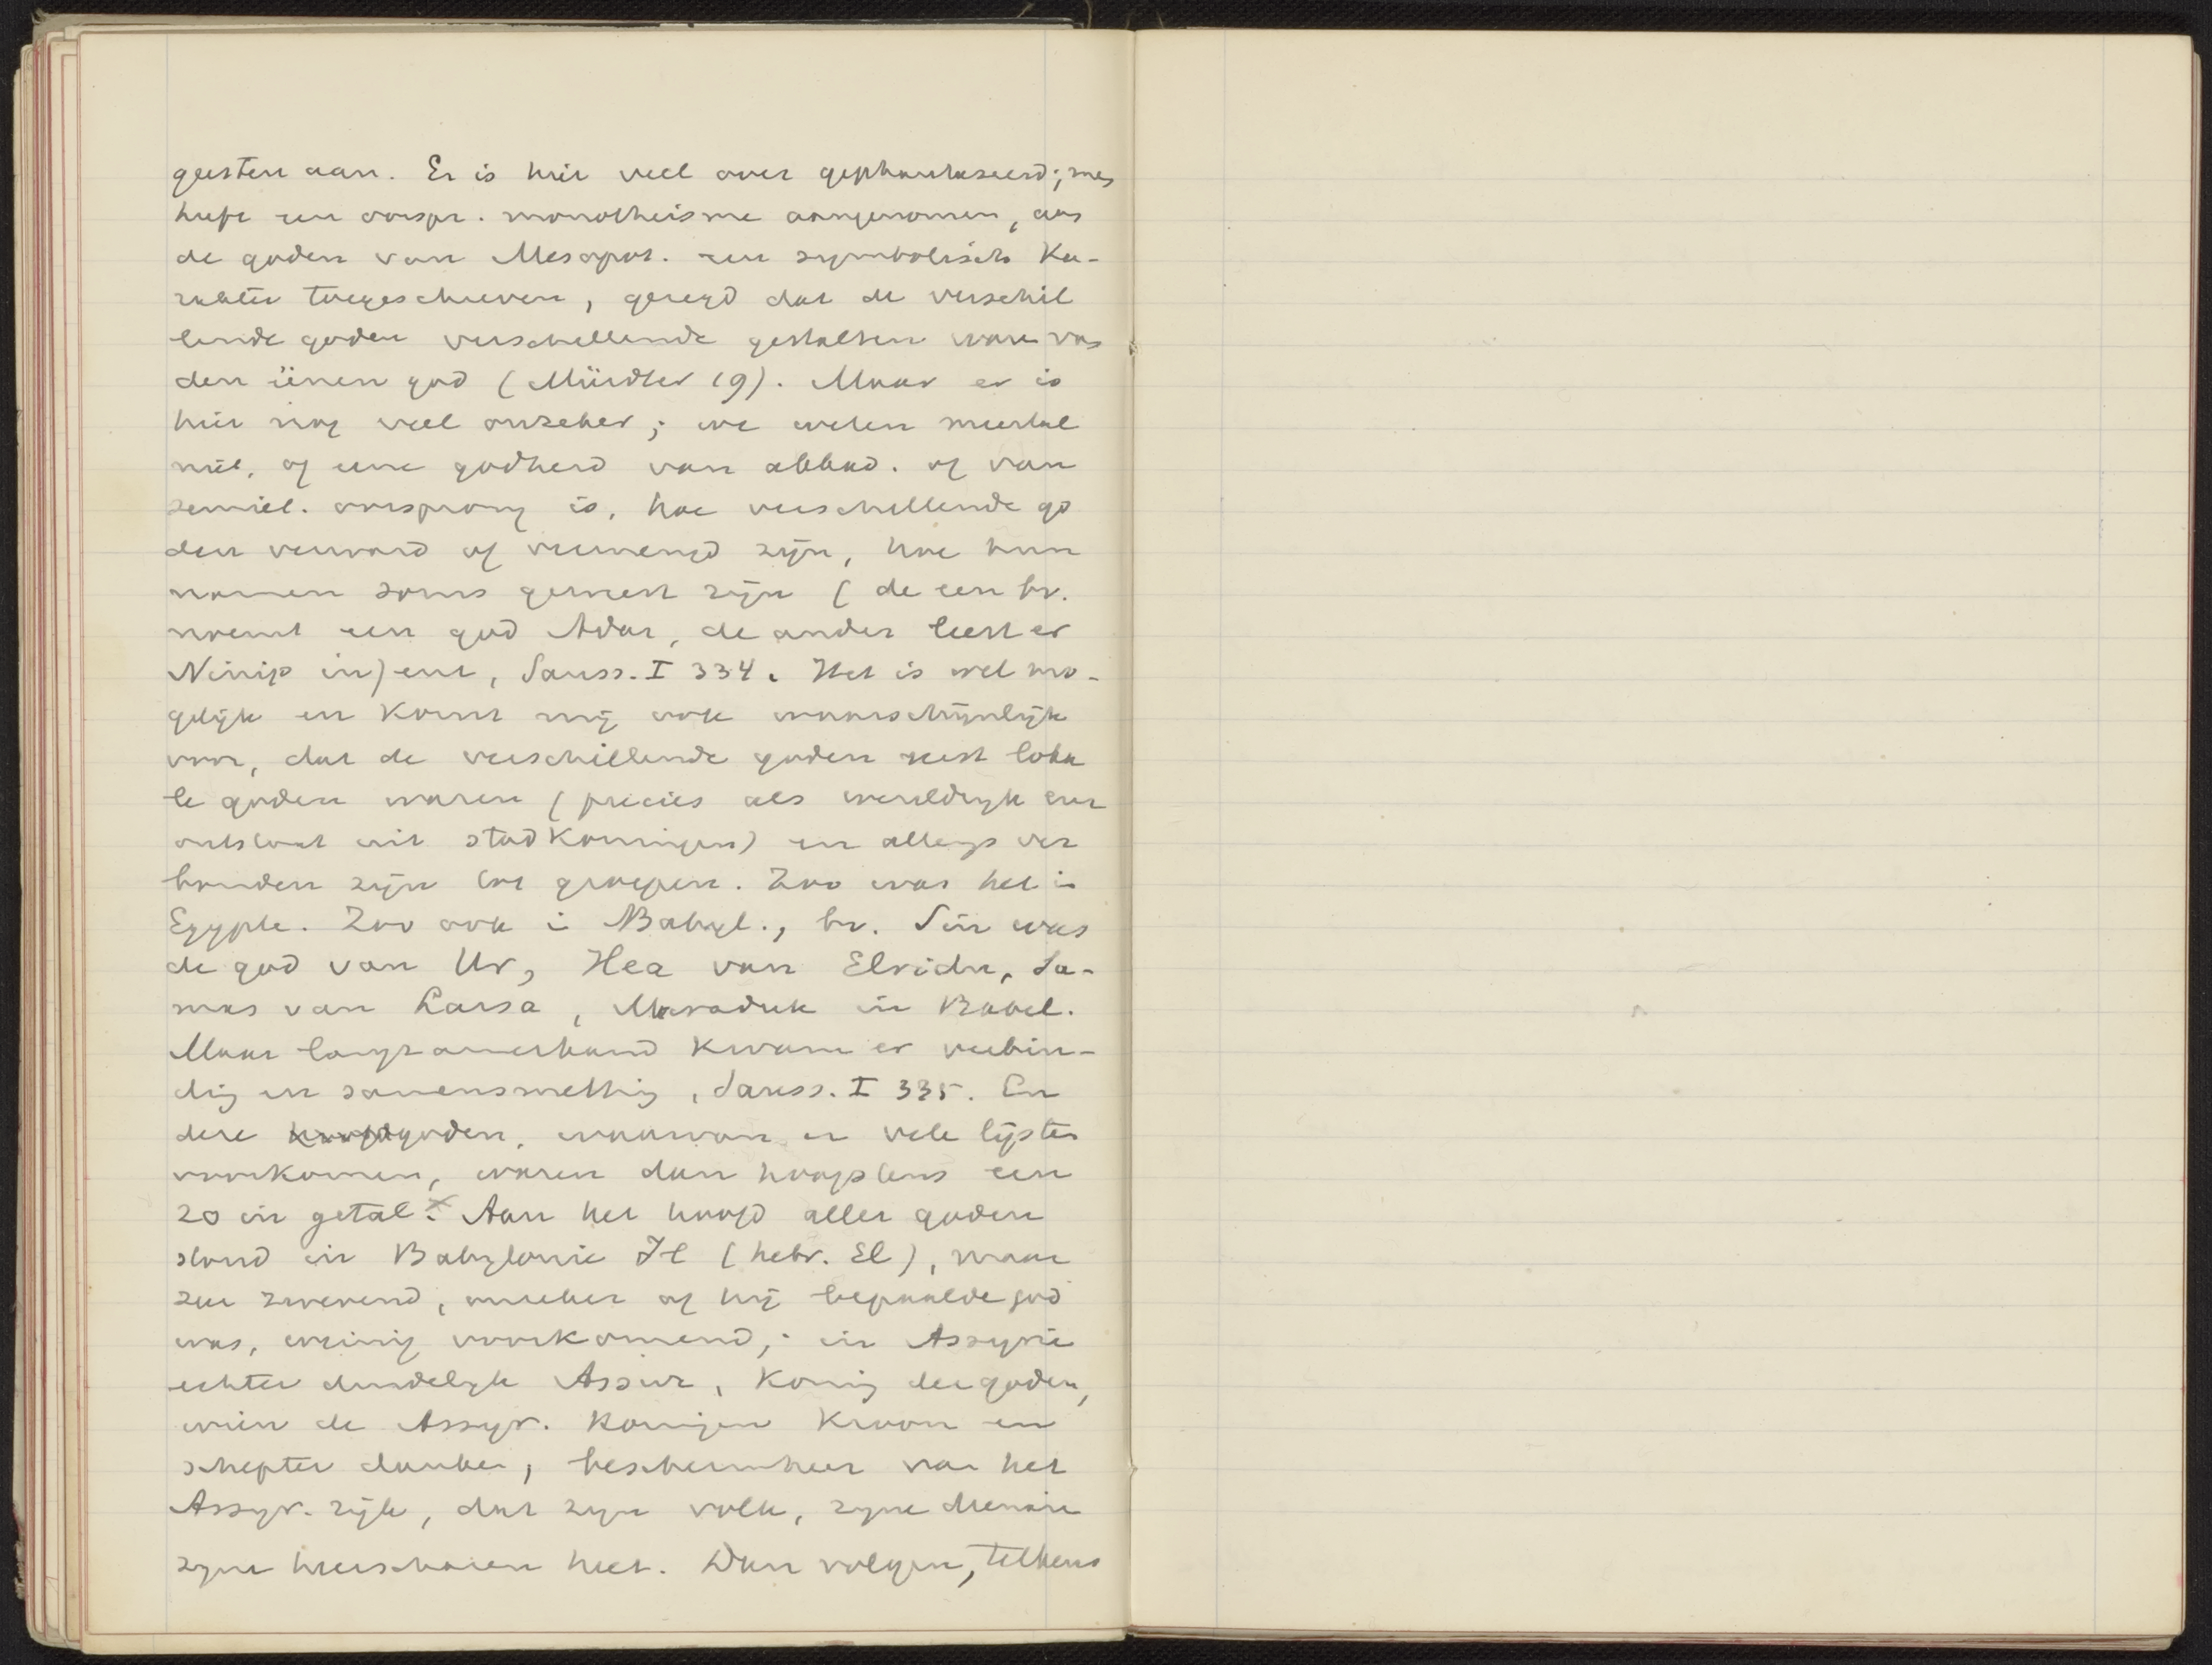 geesten aan. Er is hier veel over gephantaseerd; men
heeft een oorspr. monotheisme aangenomen, aan
de goden van Mesopot. een symbolisch Ka-
rakter toegeschreven, gezegd dat de verschil
lende goden verschillende gestalten waren van
den éénen god (Mürdter 19). Maar er is
hier nog veel onzeker; we weten meestal
niet, of eene godheid van akkad. of van
semiet. oorsprong is, hoe verschillende go
den verward of vermengd zijn, hoe hun
namen soms gemest zijn (de een bv.
noemt een god Adar, de ander leest er
Ninip in) enz, Sauss. I 334. Het is wel mo-
gelijk en komt mij ook waarschijnlijk
voor, dat de verschillende goden eerst loka
le goden waren (precies als wereldrijk eerst
ontstaat uit stadkoningen) en allengs ver
bonden zijn tot groepen. Zoo was het in
Egypte. Zoo ook in Babyl., bv. Sin was
de god van Ur, Hea van Elridu, Sa-
mas van Larsa, Maraduk in Babel.
Maar langzamerhand kwam er verbin-
ding en samensmelting, Sauss. I 335. En
deze hoofdgoden, waarvan er vele lijsten
voorkomen, waren dan hoogstens een
20 in getal. x Aan het hoofd aller goden
stond in Babylonie Il (hebr. El), maar
zeer zwevend, onzeker of hij bepaalde god
was, weinig voorkomend; in Assyrie
echter duidelijk Assur, Koning der goden,
wien de Assyr. Koningen Kroon en
schepter danken, beschermheer van het
Assyr. rijk, dat zijn volk, zijne
zijne heerscharen heet. Dan volgen, telkens